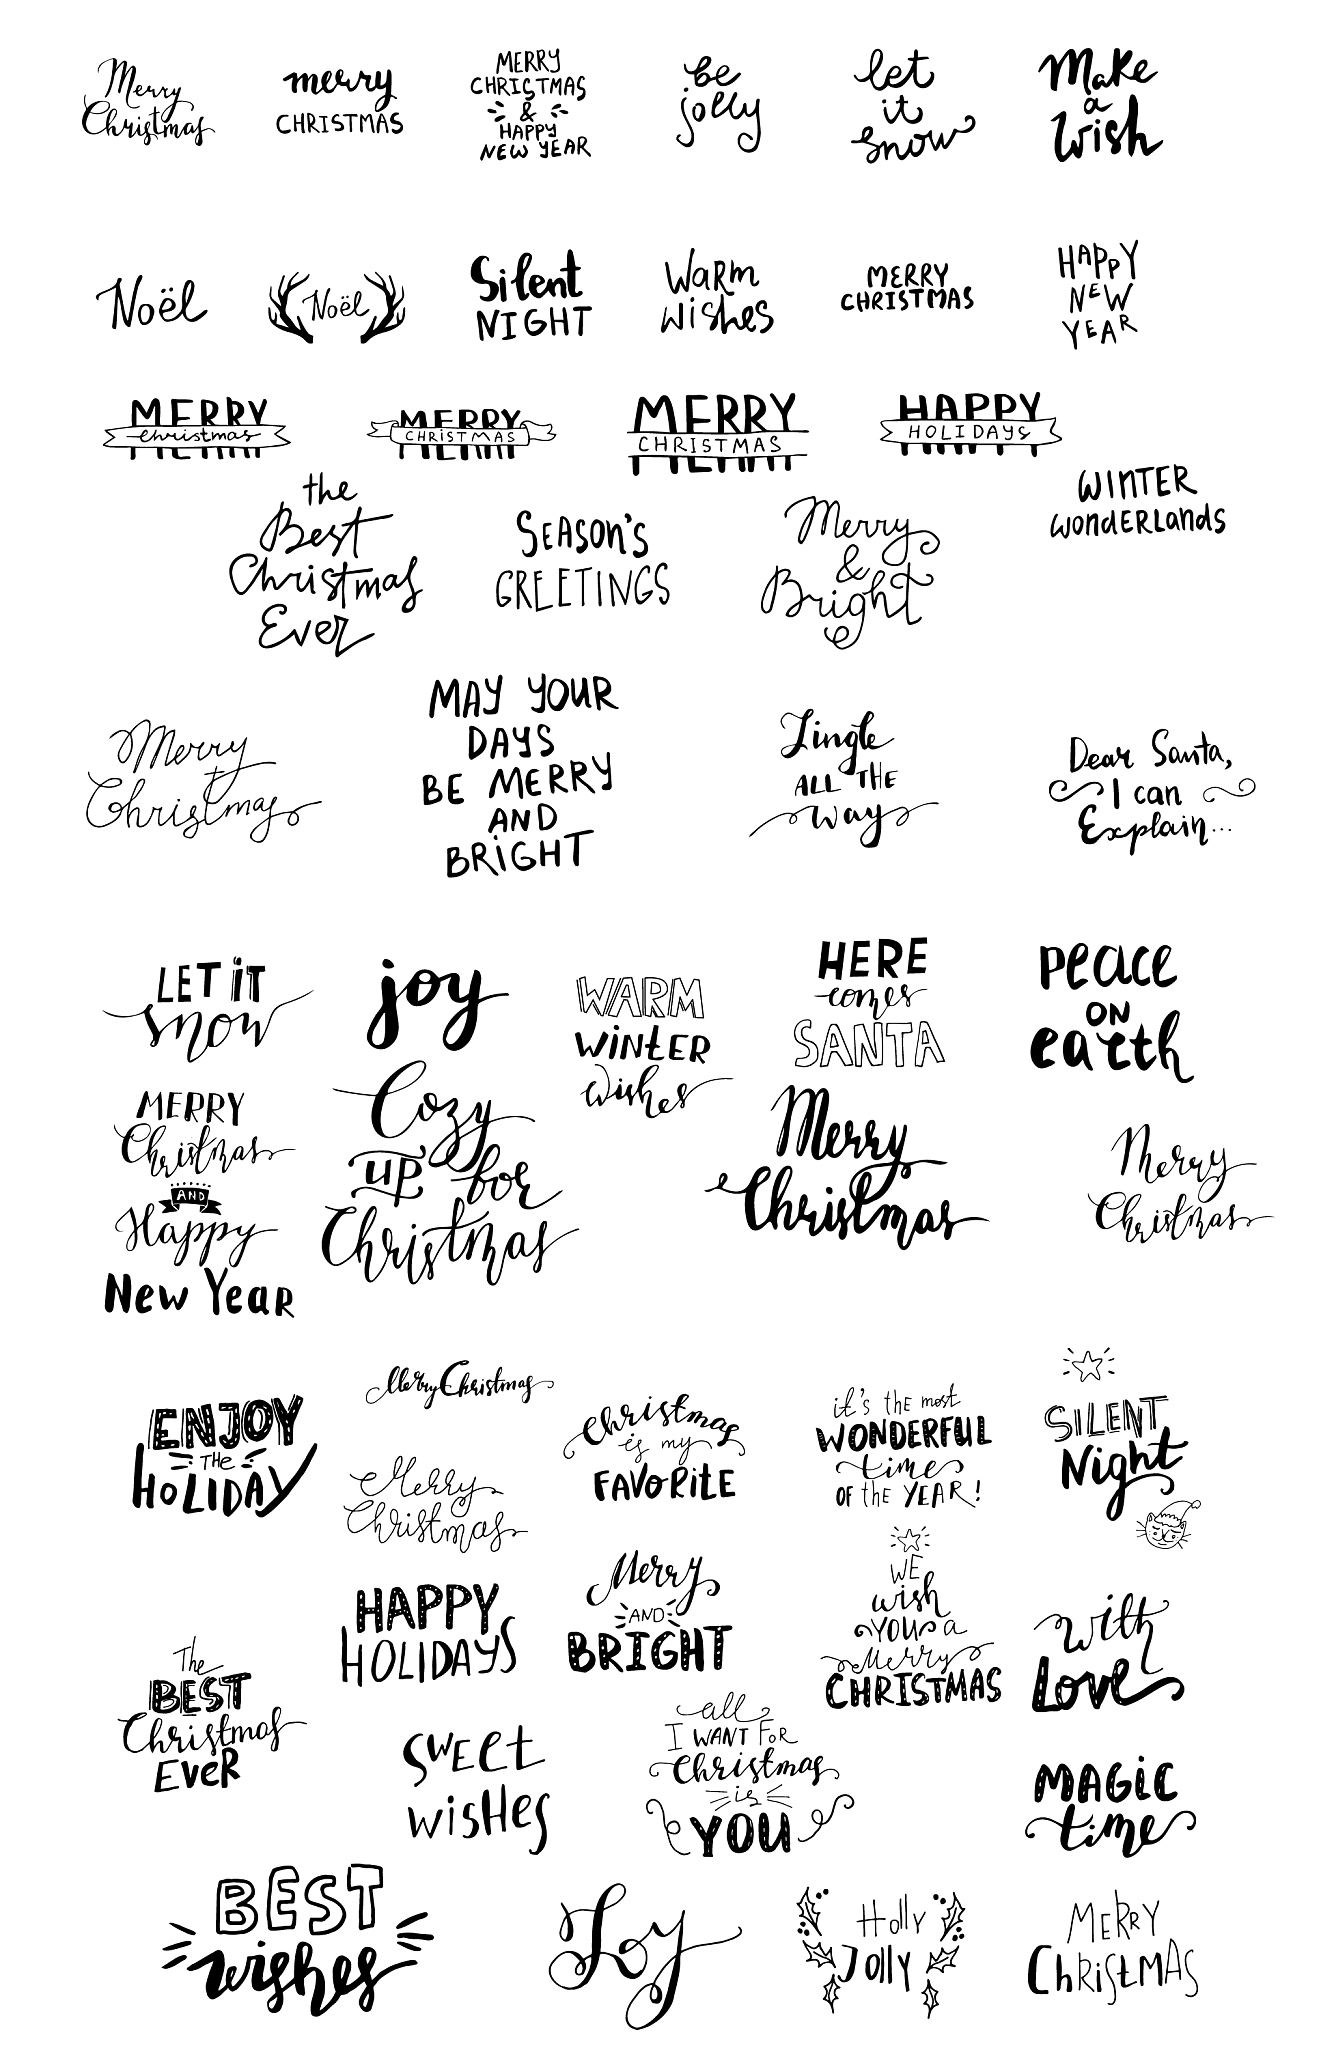 Merry
Christmas
merry
CHRISTMAS
MERRY
CHRISTMAS
&
HAPPY
NEW YEAR
be
jolly
let
it
snow
Make
a
wish
Noël
Noël
Silent
NIGHT
Warm
wishes
MERRY
CHRISTMAS
HAPPY
NEW
YEAR
MERRY
christmas
MERRY
CHRISTMAS
MERRY
CHRISTMAS
HAPPY
HOLIDAYS
the
Best
Christmas
Ever
SEASON'S
GREETINGS
Merry
&
Bright
WINTER
WONDERLANDS
Merry
Christmas
MAY YOUR
DAYS
BE MERRY
AND
BRIGHT
Jingle
ALL THE
way
Dear Santa,
I can
Explain...
LET IT
snow
joy
WARM
WINTER
wishes
HERE
comes
SANTA
PEACE
ON
earth
MERRY
Christmas
AND
Happy
New Year
Cozy
up for
Christmas
Merry
Christmas
Merry
Christmas
ENJOY
THE
HOLIDAY
Merry Christmas
Merry
Christmas
Christmas
is my
FAVORITE
it's the most
WONDERFUL
time
OF the YEAR!
SILENT
Night
The
BEST
Christmas
EVER
HAPPY
HOLIDAYS
Merry
AND
BRIGHT
WE
wish
YOU a
Merry
CHRISTMAS
with
Love
SWEET
WISHES
all
I WANT FOR
Christmas
is
YOU
MAGIC
time
BEST
wishes
Joy
Holly
Jolly
MERRY
ChRiStMAS